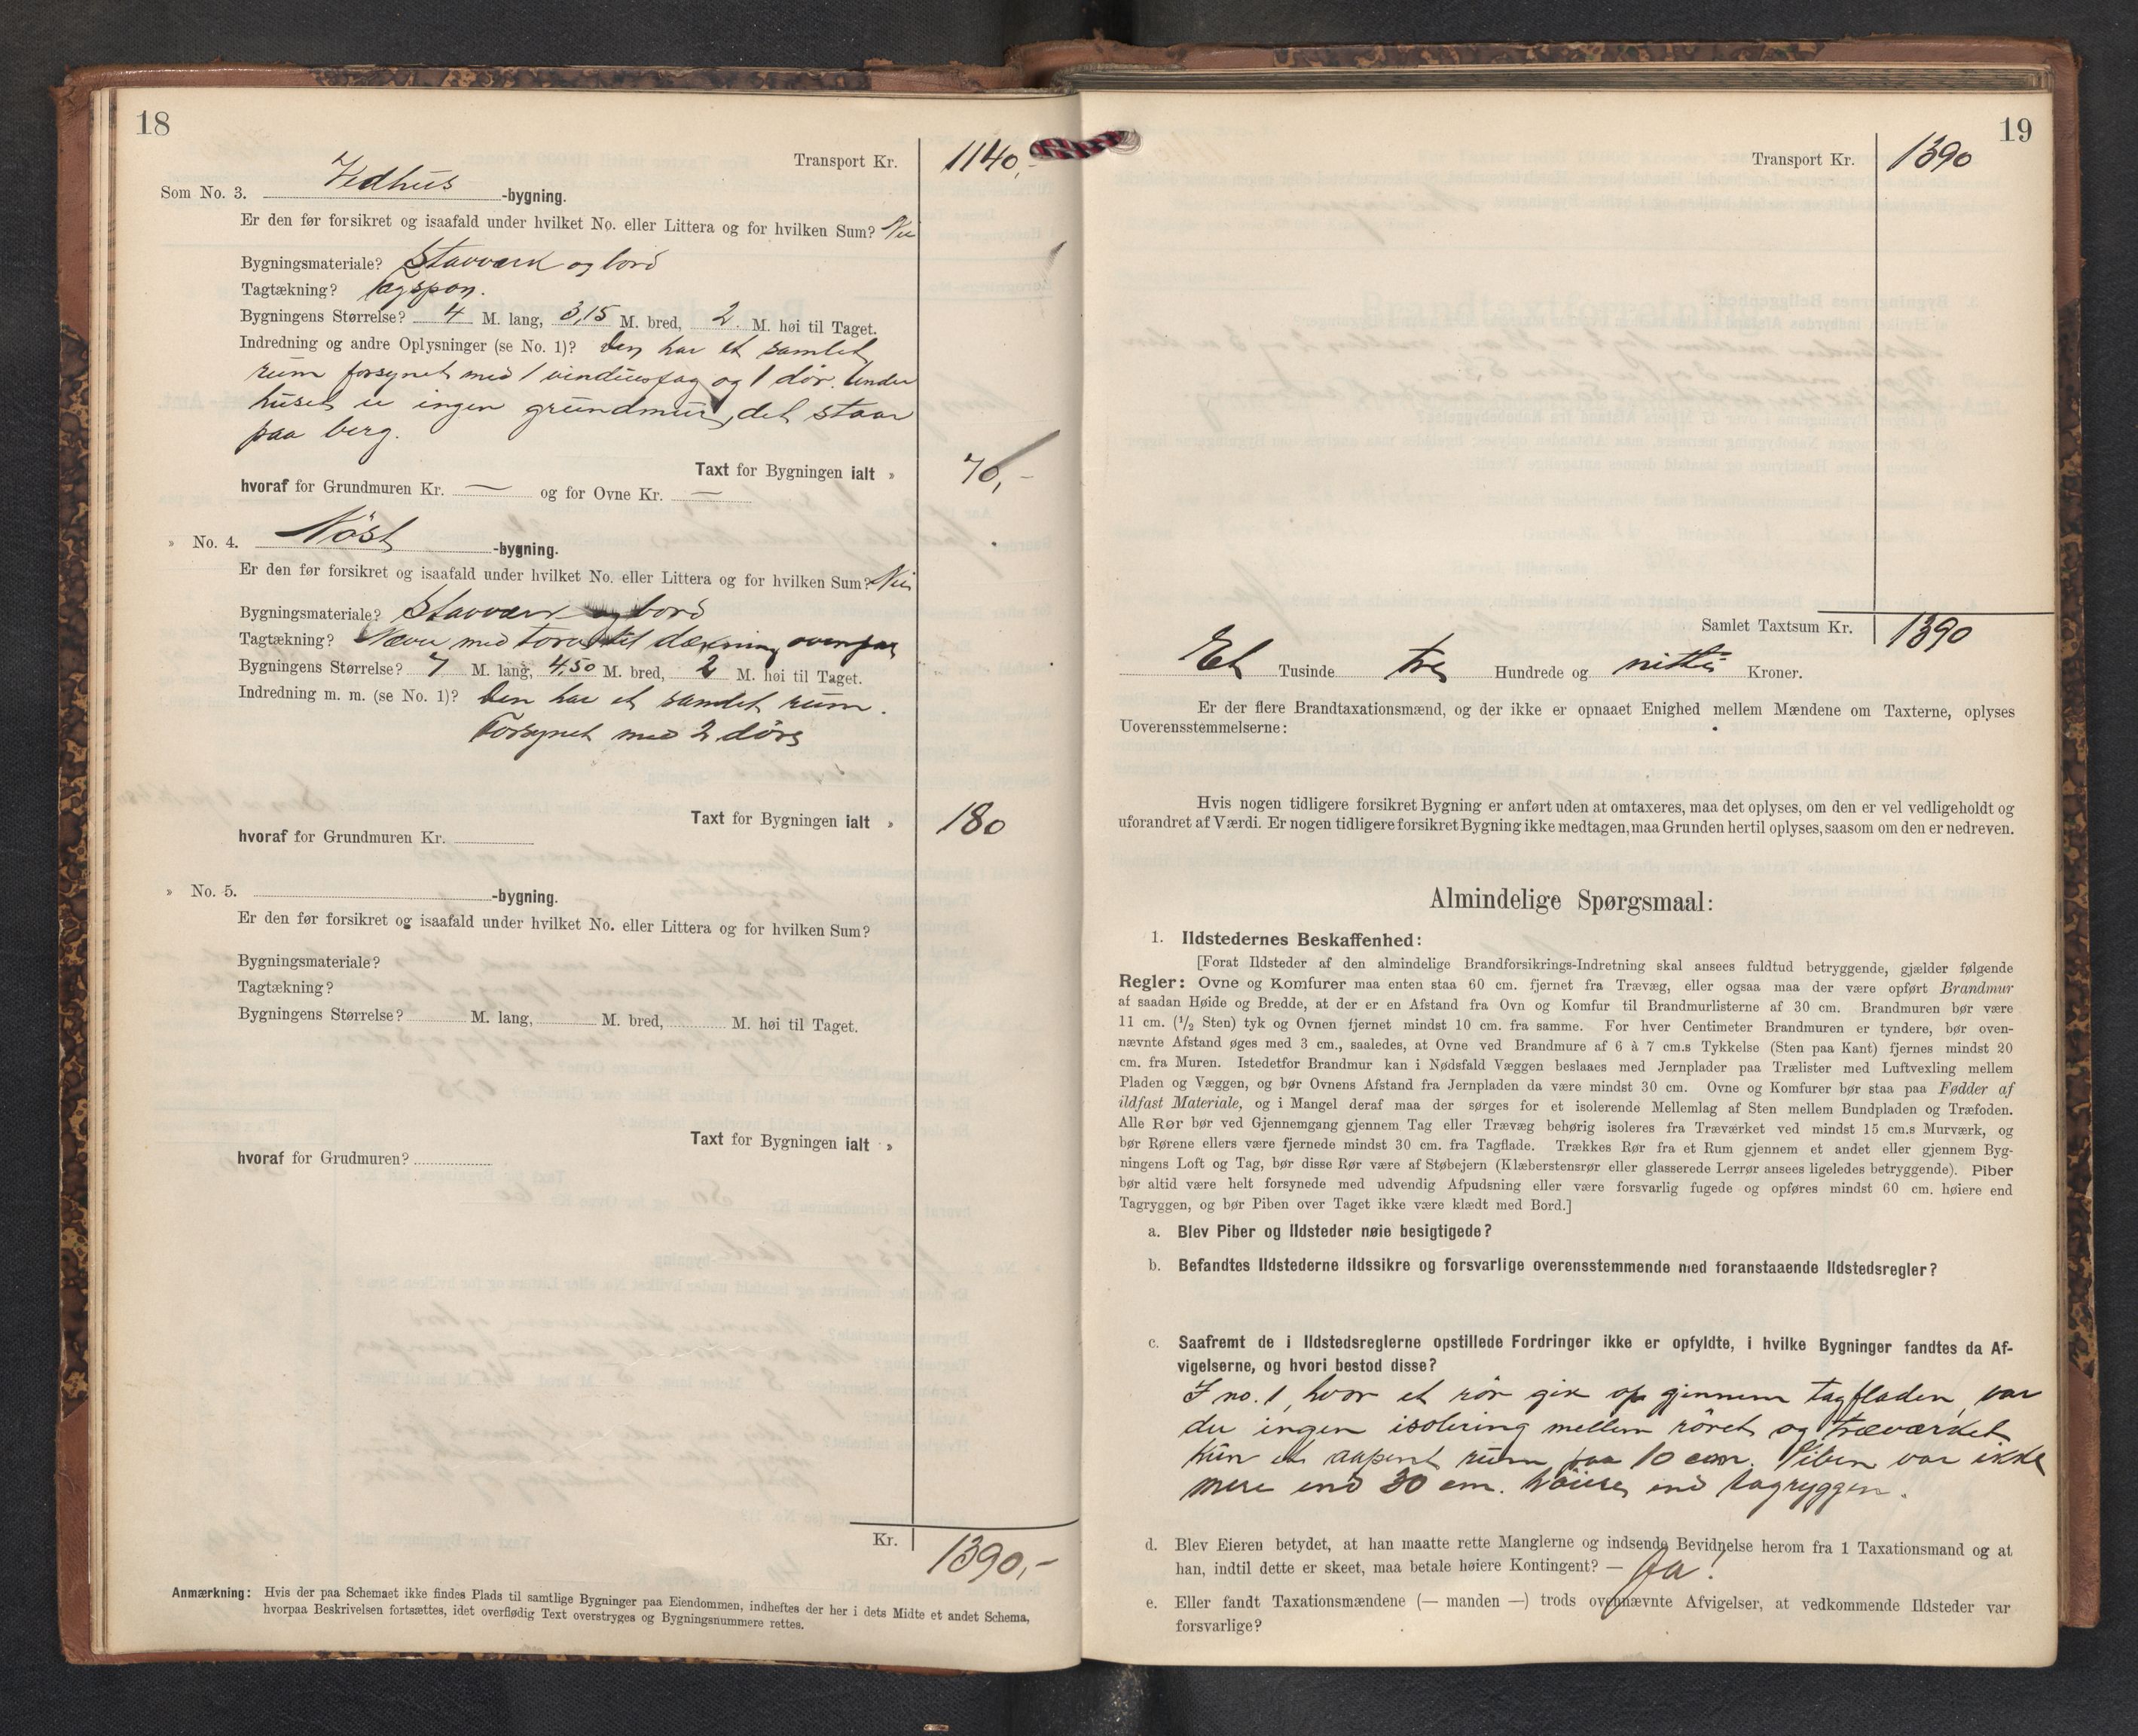 18
Transport Kr. 1140,-
Som No. 3. Vedhus -bygning.
Er den før forsikret og isaafald under hvilket No. eller Littera og for hvilken Sum? Nei
Bygningsmateriale? Stavværk og bord
Tagtækning? tagspon.
Bygningens Størrelse? 4 M. lang, 3,15 M. bred, 2. M. høi til Taget.
Indredning og andre Oplysninger (se No. 1)? Den har et samlet
rum forsynet med 1 vinduesfag og 1 dör. Under
huset er ingen grundmur, det staar
paa berg.
Taxt for Bygningen ialt » 70,-
hvoraf for Grundmuren Kr. — og for Ovne Kr. —
» No. 4. Nöst -bygning.
Er den før forsikret og isaafald under hvilket No. eller Littera og for hvilken Sum? Nei
Bygningsmateriale? Stavværk og bord
Tagtækning? Næver med torv til dækning ovenpaa
Bygningens Størrelse? 7 M. lang, 4,50 M. bred, 2 M. høi til Taget.
Indredning m. m. (se No. 1)? Den har et samlet rum.
Forsynet med 2 döre
Taxt for Bygningen ialt » 180
hvoraf for Grundmuren Kr.
» No. 5. -bygning.
Er den før forsikret og isaafald under hvilket No. eller Littera og for hvilken Sum?
Bygningsmateriale?
Tagtækning?
Bygningens Størrelse? M. lang, M. bred, M. høi til Taget.
Taxt for Bygningen ialt »
hvoraf for Grudmuren?
Kr. 1390,-
Anmærkning: Hvis der paa Schemaet ikke findes Plads til samtlige Bygninger paa Eiendommen, indheftes der her i dets Midte et andet Schema,
hvorpaa Beskrivelsen fortsættes, idet overflødig Text overstryges og Bygningsnummere rettes.
19
Transport Kr. 1390
Samlet Taxtsum Kr. 1390
Et Tusinde tre Hundrede og nitti Kroner.
Er der flere Brandtaxationsmænd, og der ikke er opnaaet Enighed mellem Mændene om Taxterne, oplyses
Uoverensstemmelserne:
Hvis nogen tidligere forsikret Bygning er anført uden at omtaxeres, maa det oplyses, om den er vel vedligeholdt og
uforandret af Værdi. Er nogen tidligere forsikret Bygning ikke medtagen, maa Grunden hertil oplyses, saasom om den er nedreven.
Almindelige Spørgsmaal:
1. Ildstedernes Beskaffenhed:
[Forat Ildsteder af den almindelige Brandforsikrings-Indretning skal ansees fuldtud betryggende, gjælder følgende
Regler: Ovne og Komfurer maa enten staa 60 cm. fjernet fra Trævæg, eller ogsaa maa der være opført Brandmur
af saadan Høide og Bredde, at der er en Afstand fra Ovn og Komfur til Brandmurlisterne af 30 cm. Brandmuren bør være
11 cm. (1/2 Sten) tyk og Ovnen fjernet mindst 10 cm. fra samme. For hver Centimeter Brandmuren er tyndere, bør oven-
nævnte Afstand øges med 3 cm., saaledes, at Ovne ved Brandmure af 6 à 7 cm.s Tykkelse (Sten paa Kant) fjernes mindst 20
cm. fra Muren. Istedetfor Brandmur kan i Nødsfald Væggen beslaaes med Jernplader paa Trælister med Luftvexling mellem
Pladen og Væggen, og bør Ovnens Afstand fra Jernpladen da være mindst 30 cm. Ovne og Komfurer bør staa paa Fødder af
ildfast Materiale, og i Mangel deraf maa der sørges for et isolerende Mellemlag af Sten mellem Bundpladen og Træfoden.
Alle Rør bør ved Gjennemgang gjennem Tag eller Trævæg behørig isoleres fra Træværket ved mindst 15 cm.s Murværk, og
bør Rørene ellers være fjernede mindst 30 cm. fra Tagflade. Trækkes Rør fra et Rum gjennem et andet eller gjennem Byg-
ningens Loft og Tag, bør disse Rør være af Støbejern (Klæberstensrør eller glasserede Lerrør ansees ligeledes betryggende). Piber
bør altid være helt forsynede med udvendig Afpudsning eller være forsvarlig fugede og opføres mindst 60 cm. høiere end
Tagryggen, og bør Piben over Taget ikke være klædt med Bord.]
a. Blev Piber og Ildsteder nøie besigtigede?
b. Befandtes Ildstederne ildssikre og forsvarlige overensstemmende med foranstaaende Ildstedsregler?
c. Saafremt de i Ildstedsreglerne opstillede Fordringer ikke er opfyldte, i hvilke Bygninger fandtes da Af-
vigelserne, og hvori bestod disse?
I no. 1, hvor et rör gik op gjennem tagfladen, var
der ingen isolering mellem röret og træværket
kun et aapent rum paa 10 cm. Piben var ikke
mere end 30 cm. höiere end tagryggen.
d. Blev Eieren betydet, at han maatte rette Manglerne og indsende Bevidnelse herom fra 1 Taxationsmand og at
han, indtil dette er skeet, maa betale høiere Kontingent? — Ja!
e. Eller fandt Taxationsmændene (— manden —) trods ovennævnte Afvigelser, at vedkommende Ildsteder var
forsvarlige?